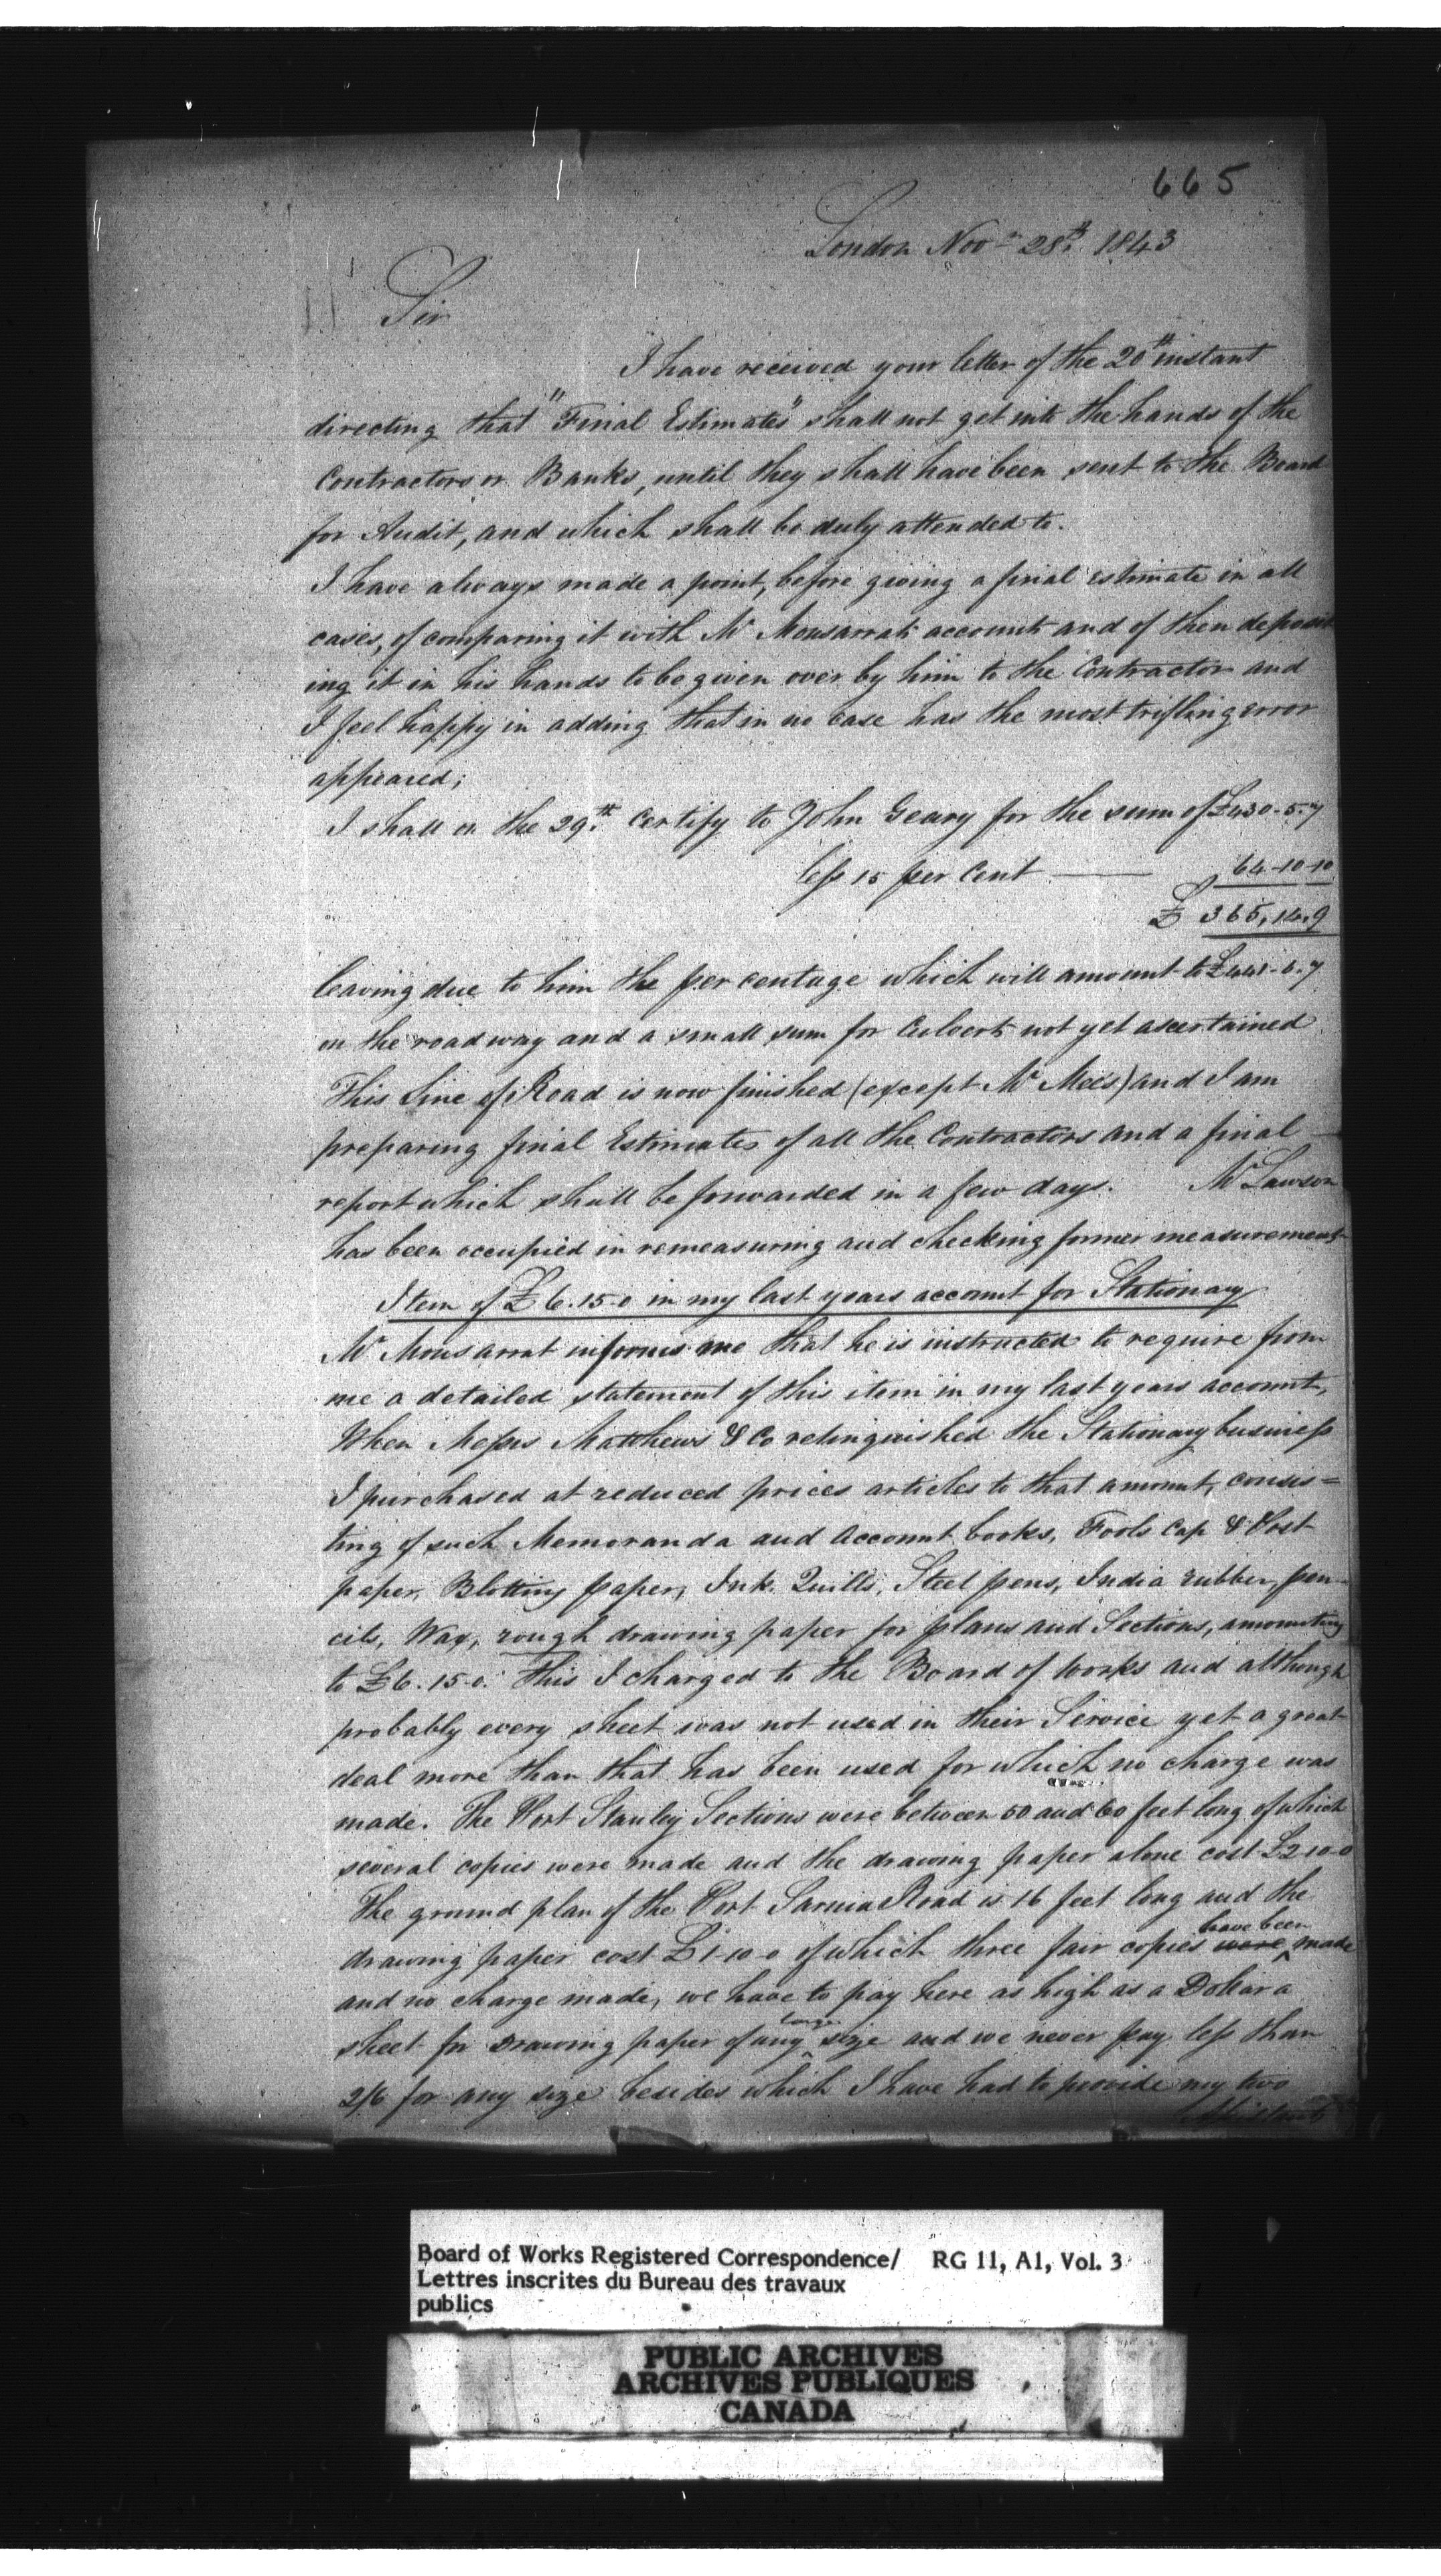 665
London Novr 28th. 1843
Sir
I have received your letter of the 20th instant
directing that "Final Estimates" shall not get into the hands of the
Contractors or Banks, until they shall have been sent to the Board
for Audit, and which shall be duly attended to.
I have always made a point, before giving a final estimate in all
cases, of comparing it with Mr Monsarrats accounts and of then deposit
ing it in his hands to be given over by him to the Contractor and
I feel happy in adding that in no case has the most trifling error
appeared;
I shall on the 29th. Certify to John Geary for the sum of £430-5.7
less 15 per Cent — 64-10-10
£ 365,14.9
leaving due to him the per centage which will amount to £441-6.7
on the road way and a small sum for Culverts not yet ascertained
This Line of Road is now finished (except Mr Mee's) and I am
preparing final Estimates of all the Contractors and a final
report which shall be forwarded in a few days. Mr Lawson
has been occupied in remeasuring and checking former measurements
Item of £6.15-0 in my last years account for Stationary
Mr Monsarrat informs me that he is instructed to require from
me a detailed statement of this item in my last years account,
When Messrs Matthews & Co relinquished the Stationary business
I purchased at reduced prices articles to that amount, consis=
ting of such Memoranda and Account books, Fools Cap & Post
paper, Blotting paper, Ink. Quills, Steel pens, India rubber, pen-
cils, Wax, rough drawing paper for plans and Sections, amounting
to £6.15-0. This I charged to the Board of Works and although
probably every sheet was not used in their Service yet a great
deal more than that has been used for which no charge was
made. The Port Stanley Sections were between 50 and 60 feet long of which
several copies were made and the drawing paper alone cost £2-10-0
The ground plan of the Port Sarnia Road is 16 feet long and the
drawing paper cost £1-10-0 of which three fair copies were have been made
and no charge made, we have to pay here as high as a Dollar a
sheet for Drawing paper of any large size and we never pay less than
2/6 for any size besides which I have had to provide my two
Assistants
Board of Works Registered Correspondence/ RG 11, A1, Vol. 3
Lettres inscrites du Bureau des travaux
publics
PUBLIC ARCHIVES
ARCHIVES PUBLIQUES
CANADA